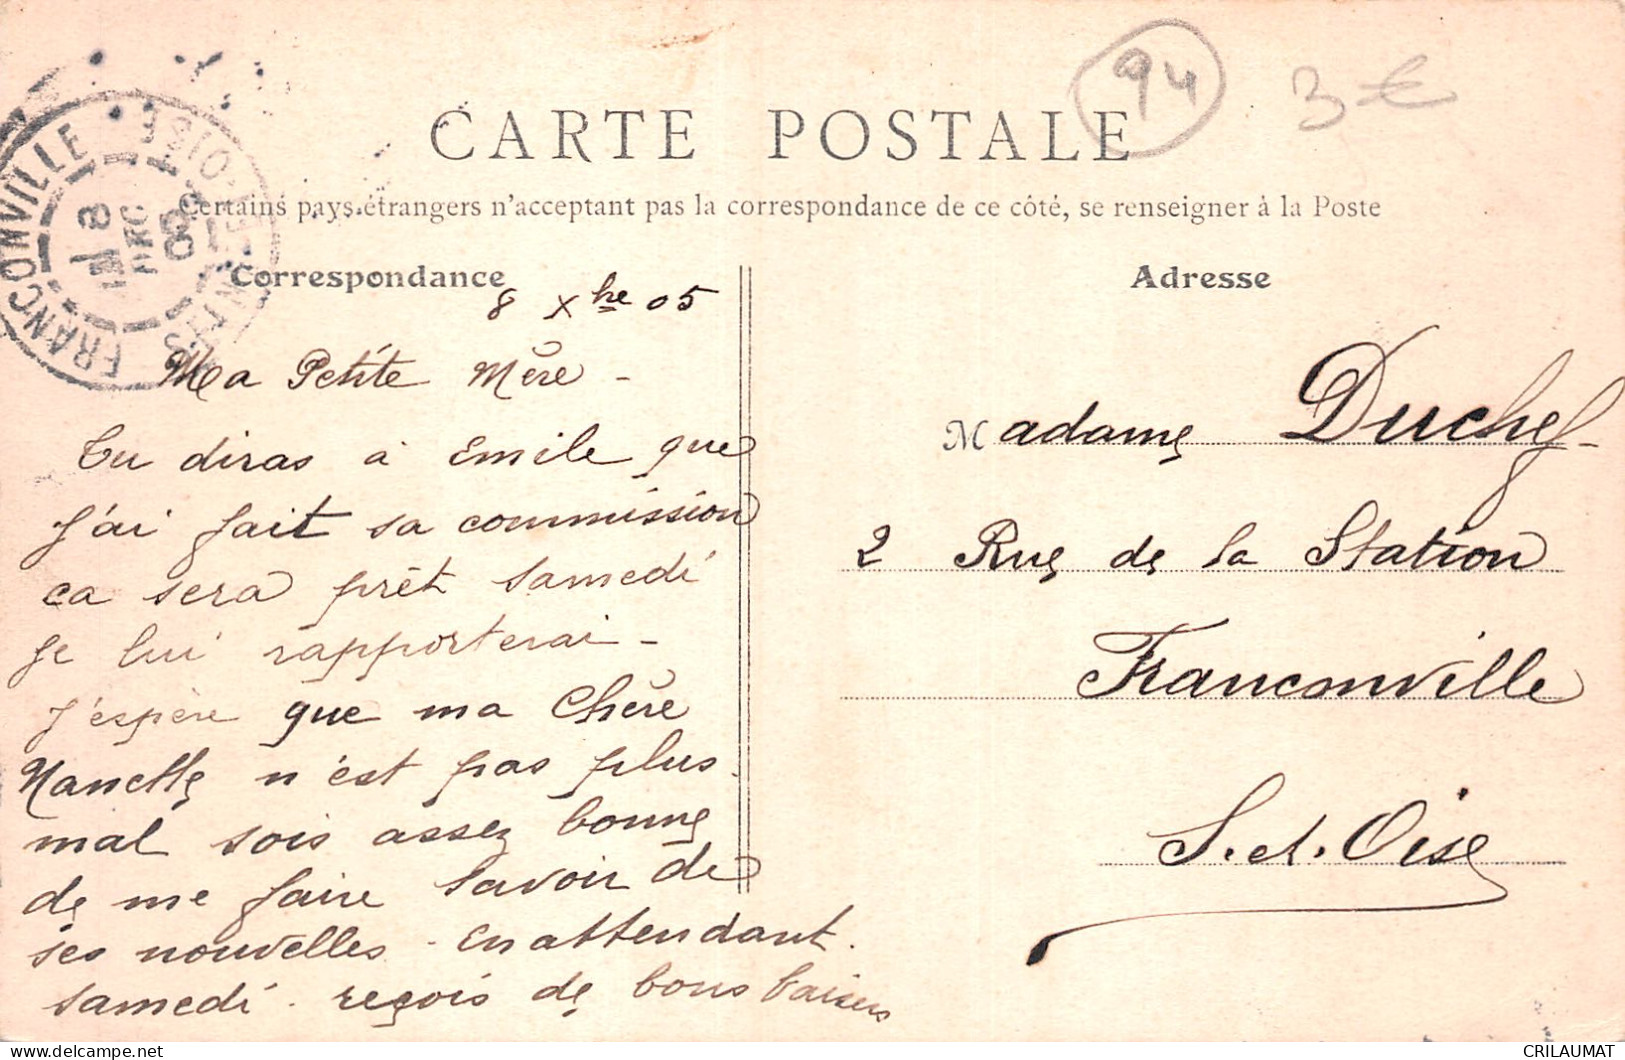 94
3 €
CARTE POSTALE
Certains pays étrangers n'acceptant pas la correspondance de ce côté, se renseigner à la Poste
FRANCONVILLE
SEINE-ET-OISE
8
DEC
05
Correspondance
8 Xbre 05
Ma Petite Mère -
Tu diras à Emile que
j'ai fait sa commission
ca sera prêt samedi
je lui rapporterai -
J'espère que ma Chère
Nanette n'est pas plus
mal sois assez bonne
de me faire savoir de
ses nouvelles - En attendant
samedi - reçois de bons baisers
Adresse
Madame Duchef
2 Rue de la Station
Franconville
S. et. Oise
CRILAUMAT